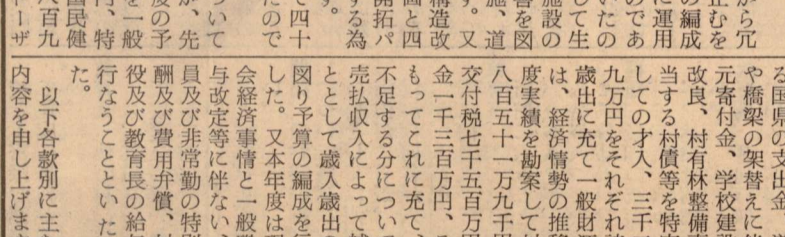 から冗
止むを
の編成
に運用
のであ
いたの
して生
施設の
善を図
施、道
す。又
構造改
画と四
開拓パ
する為
す。
て四十
たので
ついて
が、先
度の予
を一般
円、特
国民健
八百九
ーザ
る国県の支出金
や橋梁の架替えに
元寄付金、学校建
改良、村有林整備
当する村債等を特
しての才入、三千
九万円をそれぞれ
歳出に充て一般財
は、経済情勢の推移
度実績を勘案して
八百五十一万九千円
交付税七千五百万円
金一千三百万円、
もってこれに充て、
不足する分につい
売払収入によって
ととして歳入歳出の
図り予算の編成を
した。又本年度は
会経済事情と一般
与改定等に伴ない、
員及び非常勤の特別
酬及び費用弁償、
役及び教育長の給
行なうことといた
た。
以下各款別に主
内容を申し上げま